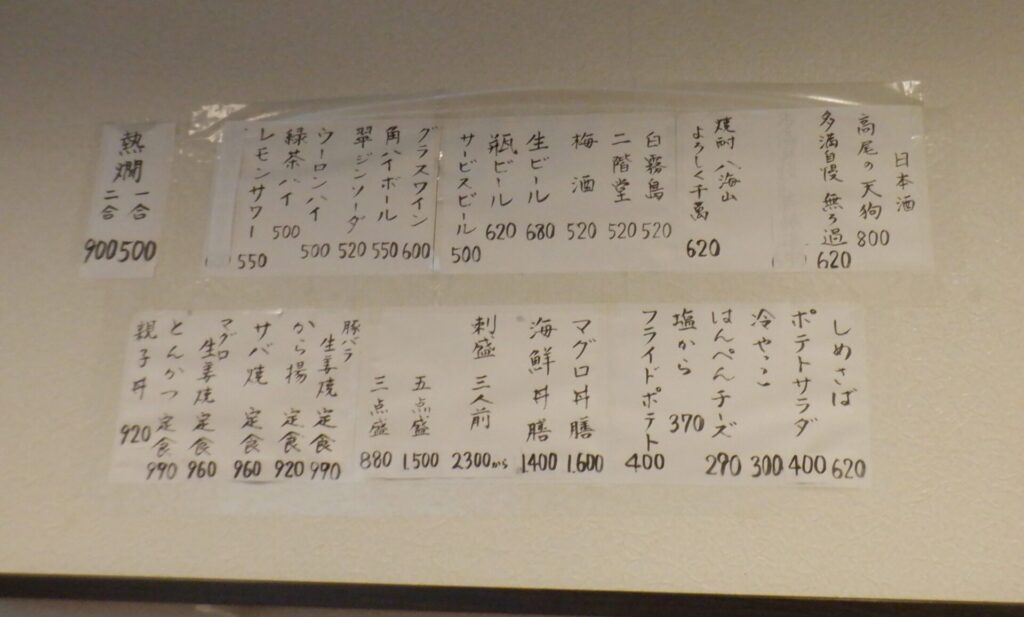 日本酒
高尾の天狗 800
多満自慢 無ろ過 620
焼酎 八海山
よろしく千萬 620
白霧島 520
二階堂 520
梅酒 520
生ビール 680
瓶ビール 620
サービスビール 500
グラスワイン 600
角ハイボール 550
翠ジンソーダ 520
ウーロンハイ 500
緑茶ハイ 500
レモンサワー 550
熱燗 一合 500
二合 900
しめさば 620
ポテトサラダ 400
冷やっこ 300
はんぺんチーズ 290
塩から 370
フライドポテト 400
マグロ丼膳 1.600
海鮮丼膳 1.400
刺盛 三人前 2300から
五点盛 1.500
三点盛 880
豚バラ生姜焼定食 990
から揚定食 920
サバ焼定食 960
マグロ生姜焼定食 960
とんかつ定食 990
親子丼 920